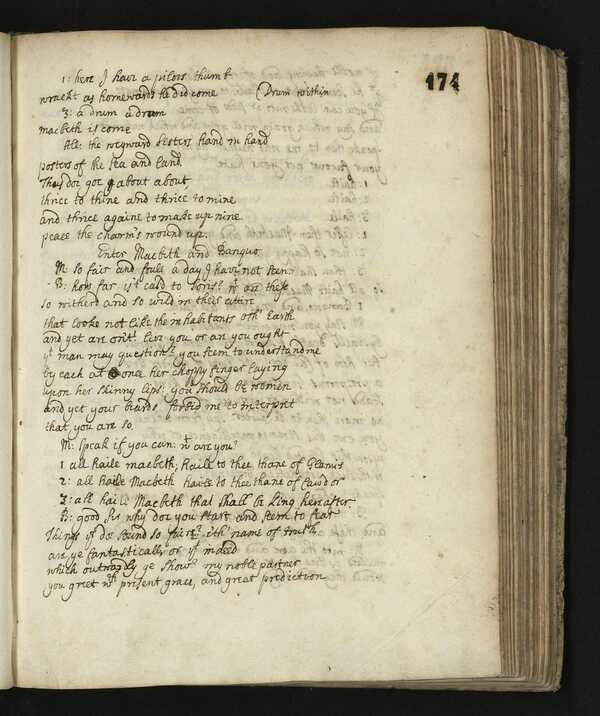 174
1: here I have a pilots thumb
wrackt as homewards he did come (Drum within
3: a drum a drum
macbeth is come
All: the weyward sisters hand in hand
posters of the sea and land
Thus doe goe about about,
thrice to thine and thrice to mine
and thrice againe to make up nine
peace the charm's wound up.
Enter Macbeth and Banquo
M: So fair and foule a day I have not seen
B: how far is't cald to Soris? wt are these
so witherd and so wild in their attire
that looke not like the inhabitants oth' Earth
and yet are on't. live you or are you ought
yt man may question? you seem to understand me
by each at once her choppy finger laying
upon her skinny lips: you should be women
and yet your beards forbid me to interpret
that you are so.
M: Speak if you can: wt are you?
1 all haile macbeth, haile to thee thane of Glamis
2: all haile Macbeth haile to thee thane of Cawdor
3: all haile Macbeth that shall be King hereafter
B: good Sir why doe you start and seem to fear
Things yt doe sound so fair? ith' name of truth
are ye fantasticall or yt indeed
which outwardly ye show? my noble partner
you greet wth present grace, and great prediction